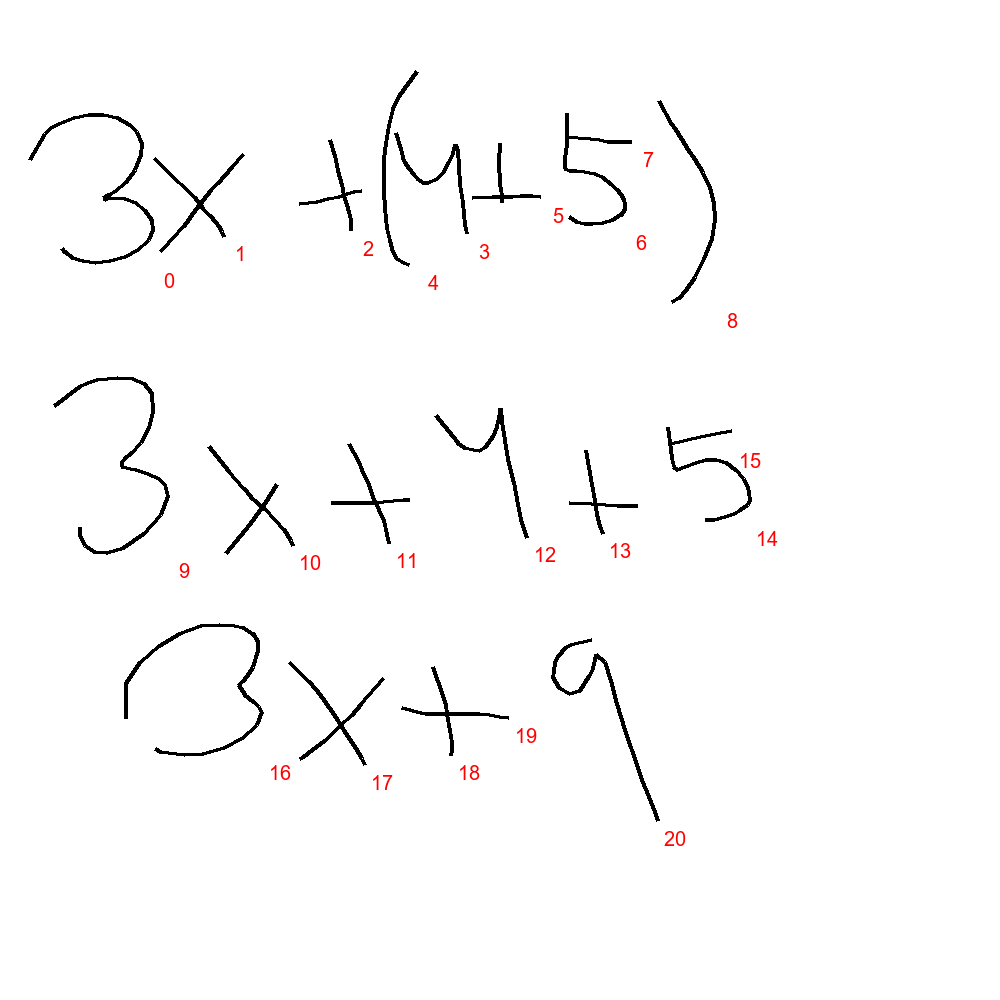 3x + (4+5)
0 1 2 4 3 5 6 7 8
3x + 4 + 5
9 10 11 12 13 15 14
3x + 9
16 17 18 19 20